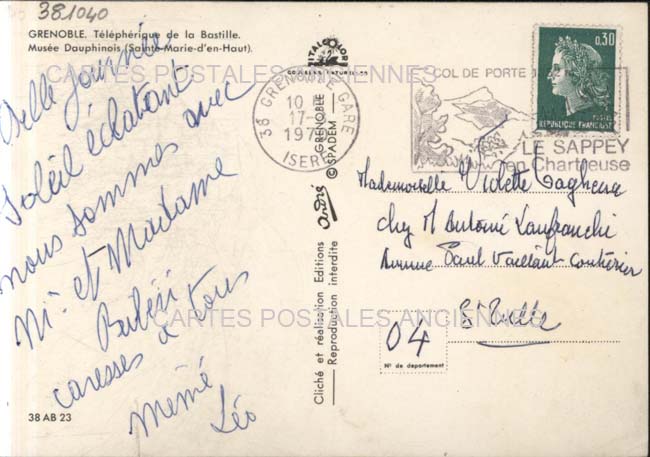 381040
GRENOBLE. Téléphérique de la Bastille.
Musée Dauphinois (Sainte-Marie-d'en-Haut).
Belle journée
Soleil éclatant
nous sommes avec
Mr et Madame
caresses à tous
Mémé
Léo
38 AB 23
COULEURS NATURELLES
38 GRENOBLE GARE
10 H
17-
197
ISERE
GRENOBLE
© SPADEM
André
Cliché et réalisation Editions
Reproduction interdite
COL DE PORTE
LE SAPPEY
en Chartreuse
0,30
POSTES
REPUBLIQUE FRANÇAISE
Mademoiselle Violette
chez M Antoine Lanfranchi
Avenue Paul Vaillant Couturier
Ste Tulle
04
N° de département
CARTES POSTALES ANCIENNES
CARTES POSTALES ANCIENNES